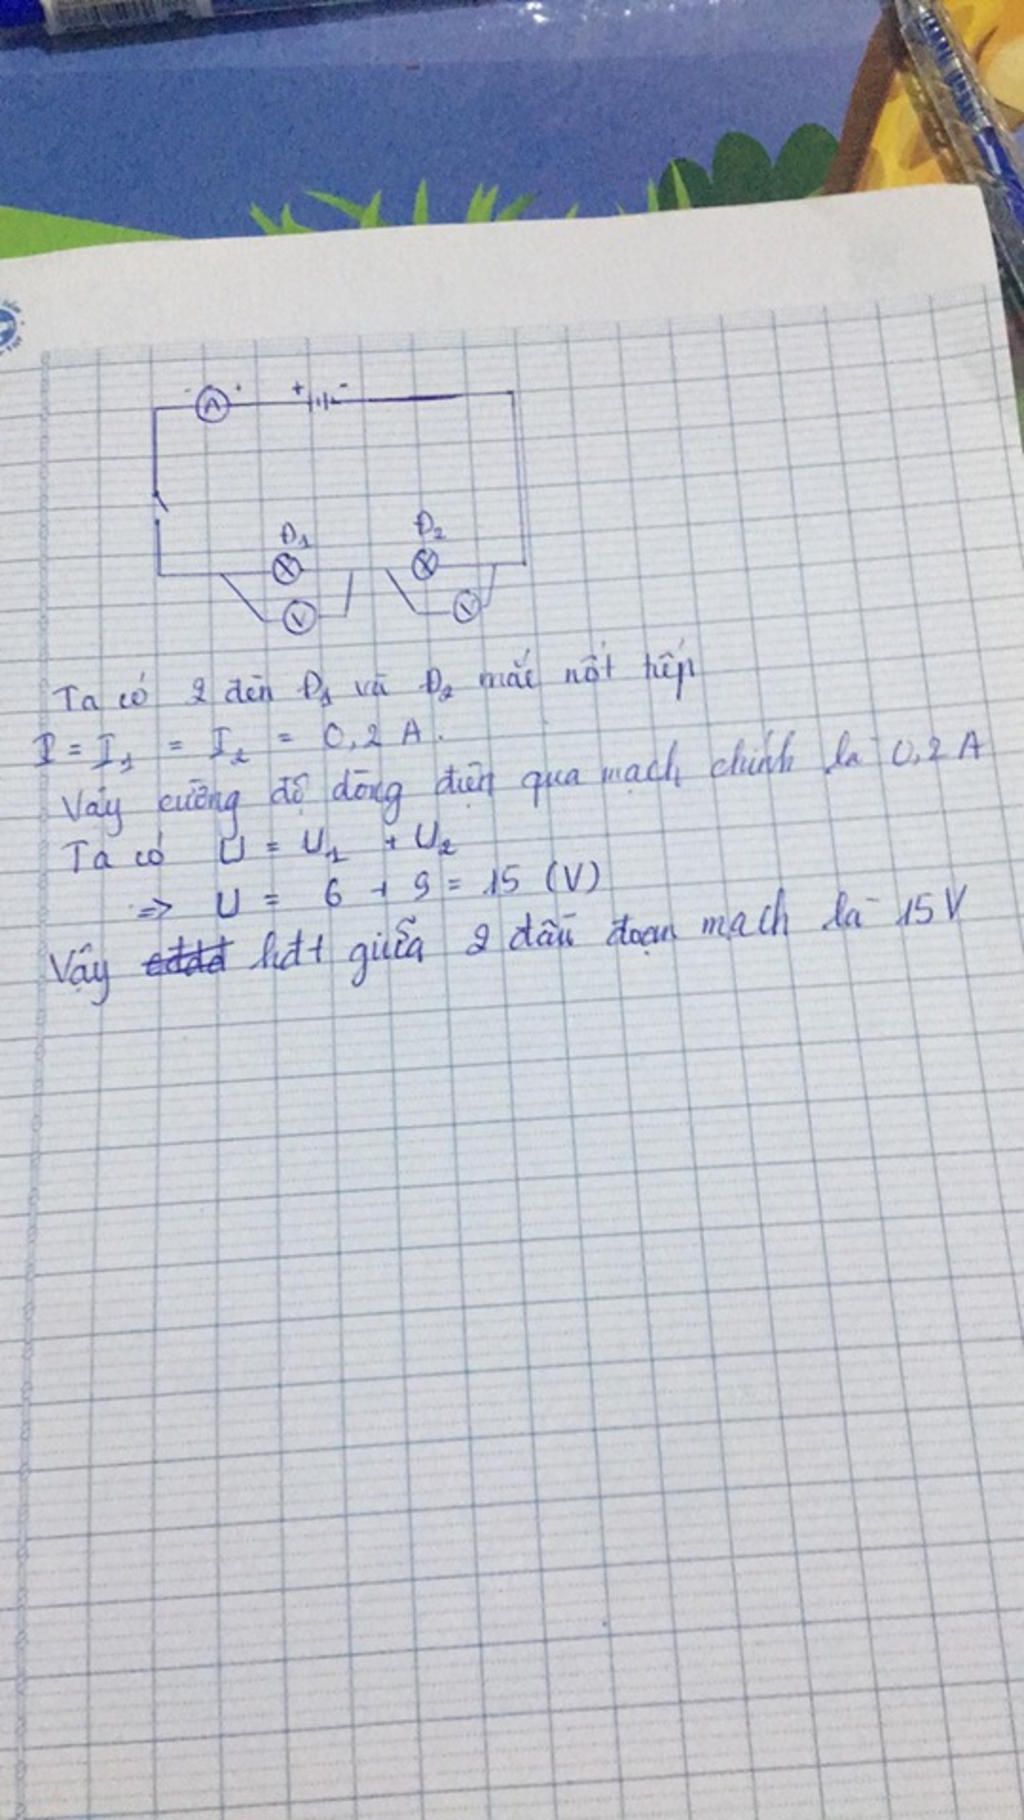 - A +
+ -
Đ₁ Đ₂
V V
Ta có 2 đèn Đ₁ và Đ₂ mắc nối tiếp
I = I₁ = I₂ = 0,2 A.
Vậy cường độ dòng điện qua mạch chính là 0,2 A
Ta có U = U₁ + U₂
=> U = 6 + 9 = 15 (V)
Vậy hđt giữa 2 đầu đoạn mạch là 15 V